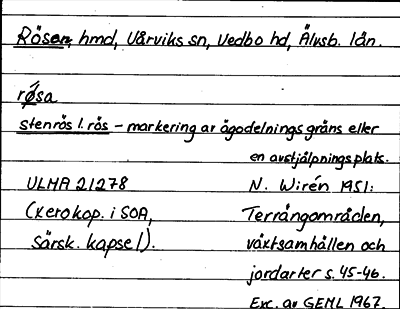 Rösen, hmd, Vårviks sn, Vedbo hd, Älvsb. län.
rø̀sa
stenrös l. rös – markering av ägodelningsgräns eller
en avstjälpningsplats.
ULMA 21278
(xerokop. i SOA,
särsk. kapsel).
N. Wirén 1951:
Terrängområden,
växtsamhällen och
jordarter s. 45-46.
Exc. av GEML 1967.